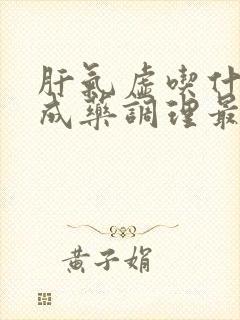 肝氣虛喫什
成藥調理最
黃子娟